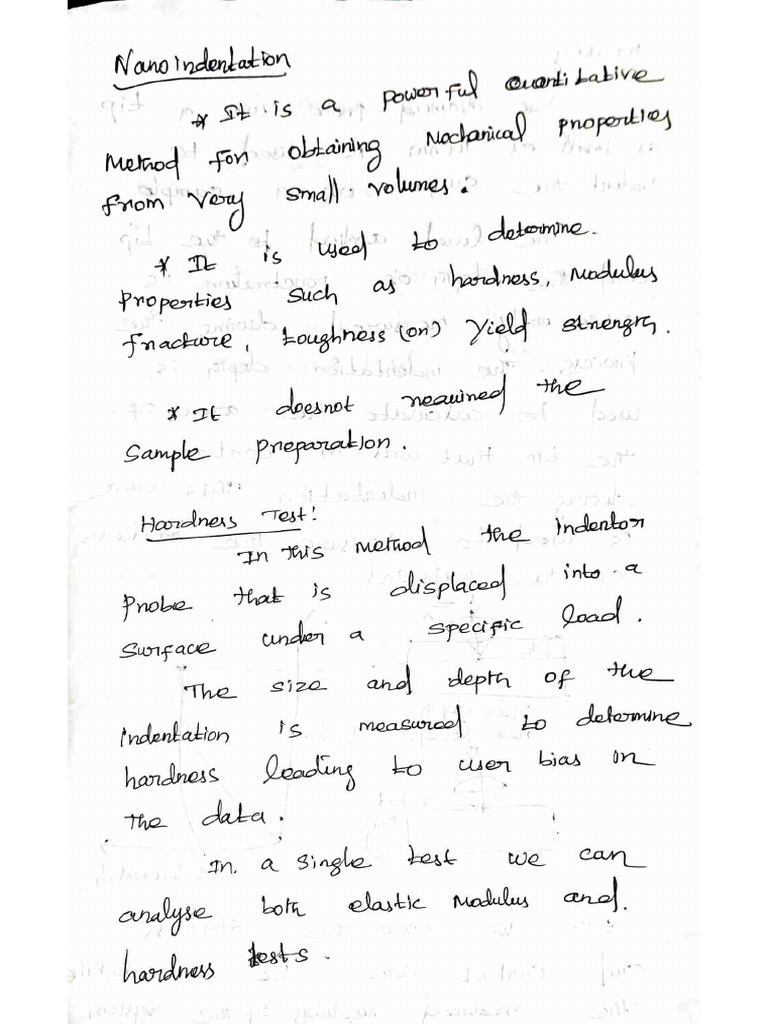 Nanoindentation
* It is a powerful quantitative
Method for obtaining Mechanical properties
from very small volumes.
* It is used to determine.
properties such as hardness, Modulus
fracture, toughness (or) Yield strength.
* It doesnot required the
Sample preparation.
Hardness Test:
In this method the indentor
Probe that is displaced into a
Surface under a specific load.
The size and depth of the
indentation is measured to determine
hardness leading to user bias in
the data.
In a single test we can
analyse both elastic Modulus and
hardness tests.